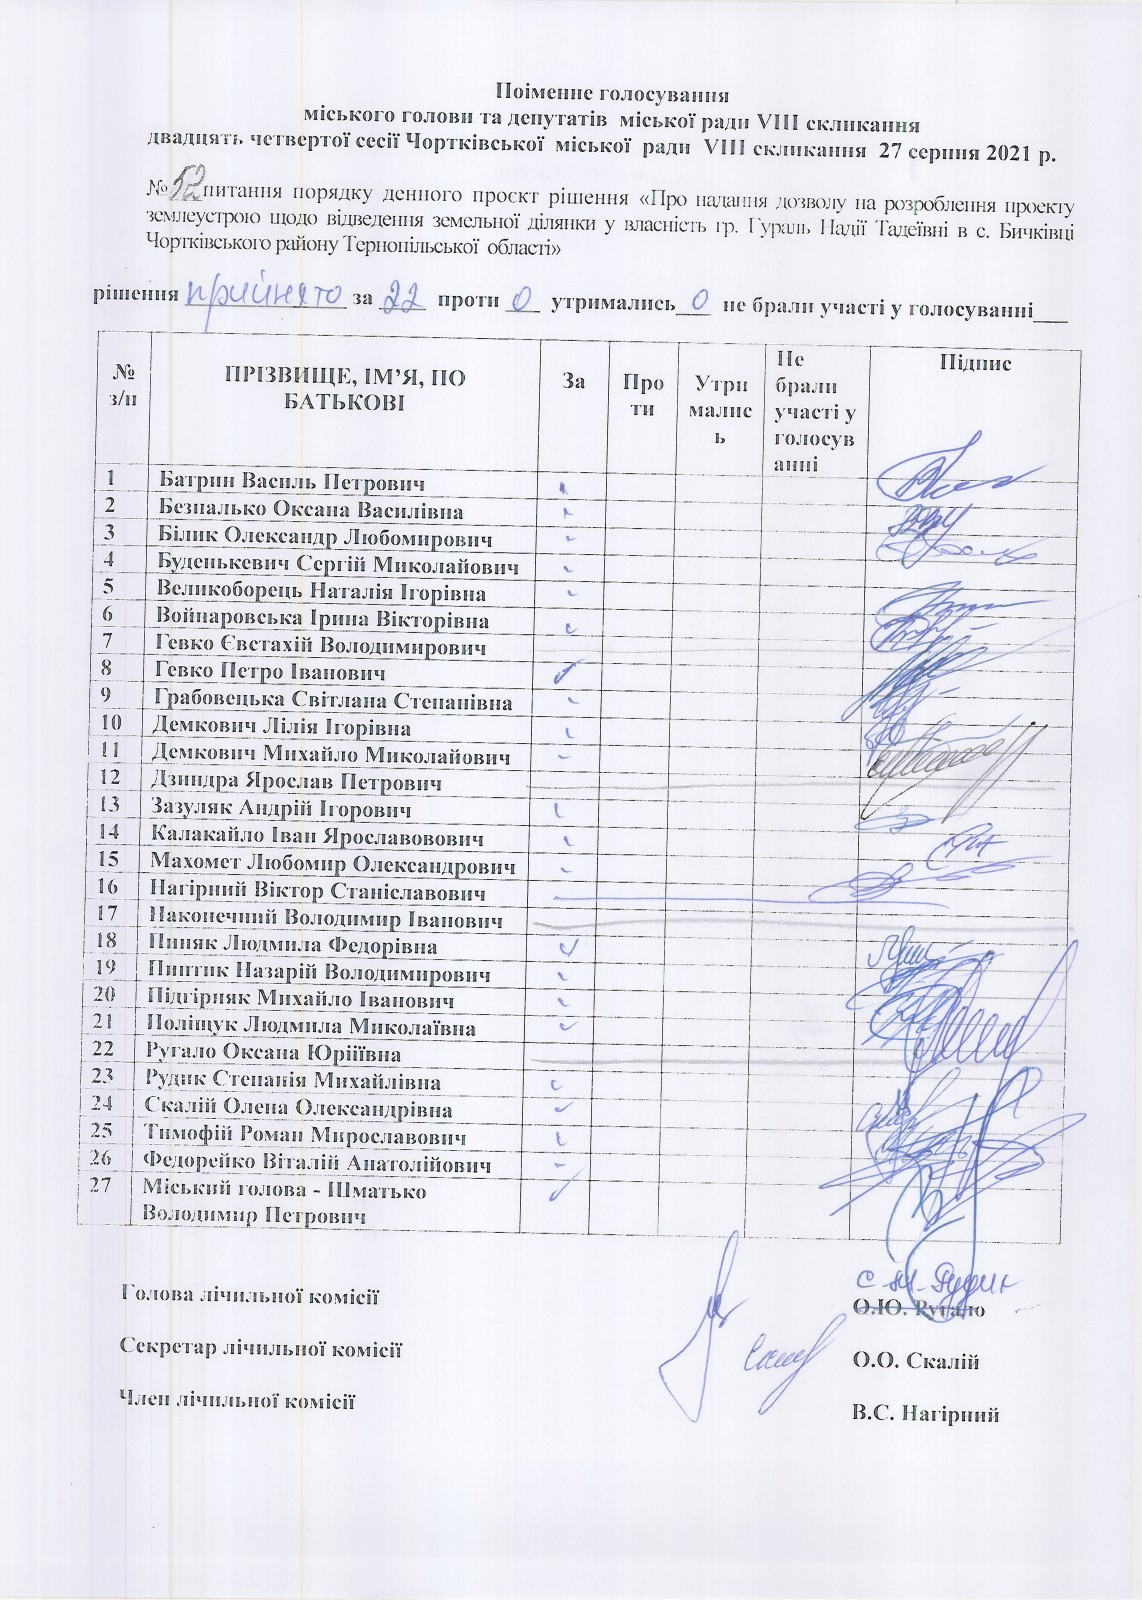 Поіменне голосування
міського голови та депутатів міської ради VIII скликання
двадцять четвертої сесії Чортківської міської ради VIII скликання 27 серпня 2021 р.
№ 52 питання порядку денного проєкт рішення «Про надання дозволу на розроблення проекту
землеустрою щодо відведення земельної ділянки у власність гр. Гураль Надії Тадеївні в с. Бичківці
Чортківського району Тернопільської області»
рішення прийнято за 22 проти 0 утримались 0 не брали участі у голосуванні___
№ з/п ПРІЗВИЩЕ, ІМ’Я, ПО БАТЬКОВІ За Про ти Утри малис ь Не брали участі у голосув анні Підпис
1 Батрин Василь Петрович
2 Безпалько Оксана Василівна
3 Білик Олександр Любомирович
4 Буденькевич Сергій Миколайович
5 Великоборець Наталія Ігорівна
6 Войнаровська Ірина Вікторівна
7 Гевко Євстахій Володимирович
8 Гевко Петро Іванович
9 Грабовецька Світлана Степанівна
10 Демкович Лілія Ігорівна
11 Демкович Михайло Миколайович
12 Дзиндра Ярослав Петрович
13 Зазуляк Андрій Ігорович
14 Калакайло Іван Ярославовович
15 Махомет Любомир Олександрович
16 Нагірний Віктор Станіславович
17 Наконечний Володимир Іванович
18 Пиняк Людмила Федорівна
19 Пиптик Назарій Володимирович
20 Підгірняк Михайло Іванович
21 Поліщук Людмила Миколаївна
22 Ругало Оксана Юріїївна
23 Рудик Степанія Михайлівна
24 Скалій Олена Олександрівна
25 Тимофій Роман Мирославович
26 Федорейко Віталій Анатолійович
27 Міський голова - Шматько
Володимир Петрович
С.М. Рудик
Голова лічильної комісії О.Ю. Ругало
Секретар лічильної комісії О.О. Скалій
Член лічильної комісії В.С. Нагірний